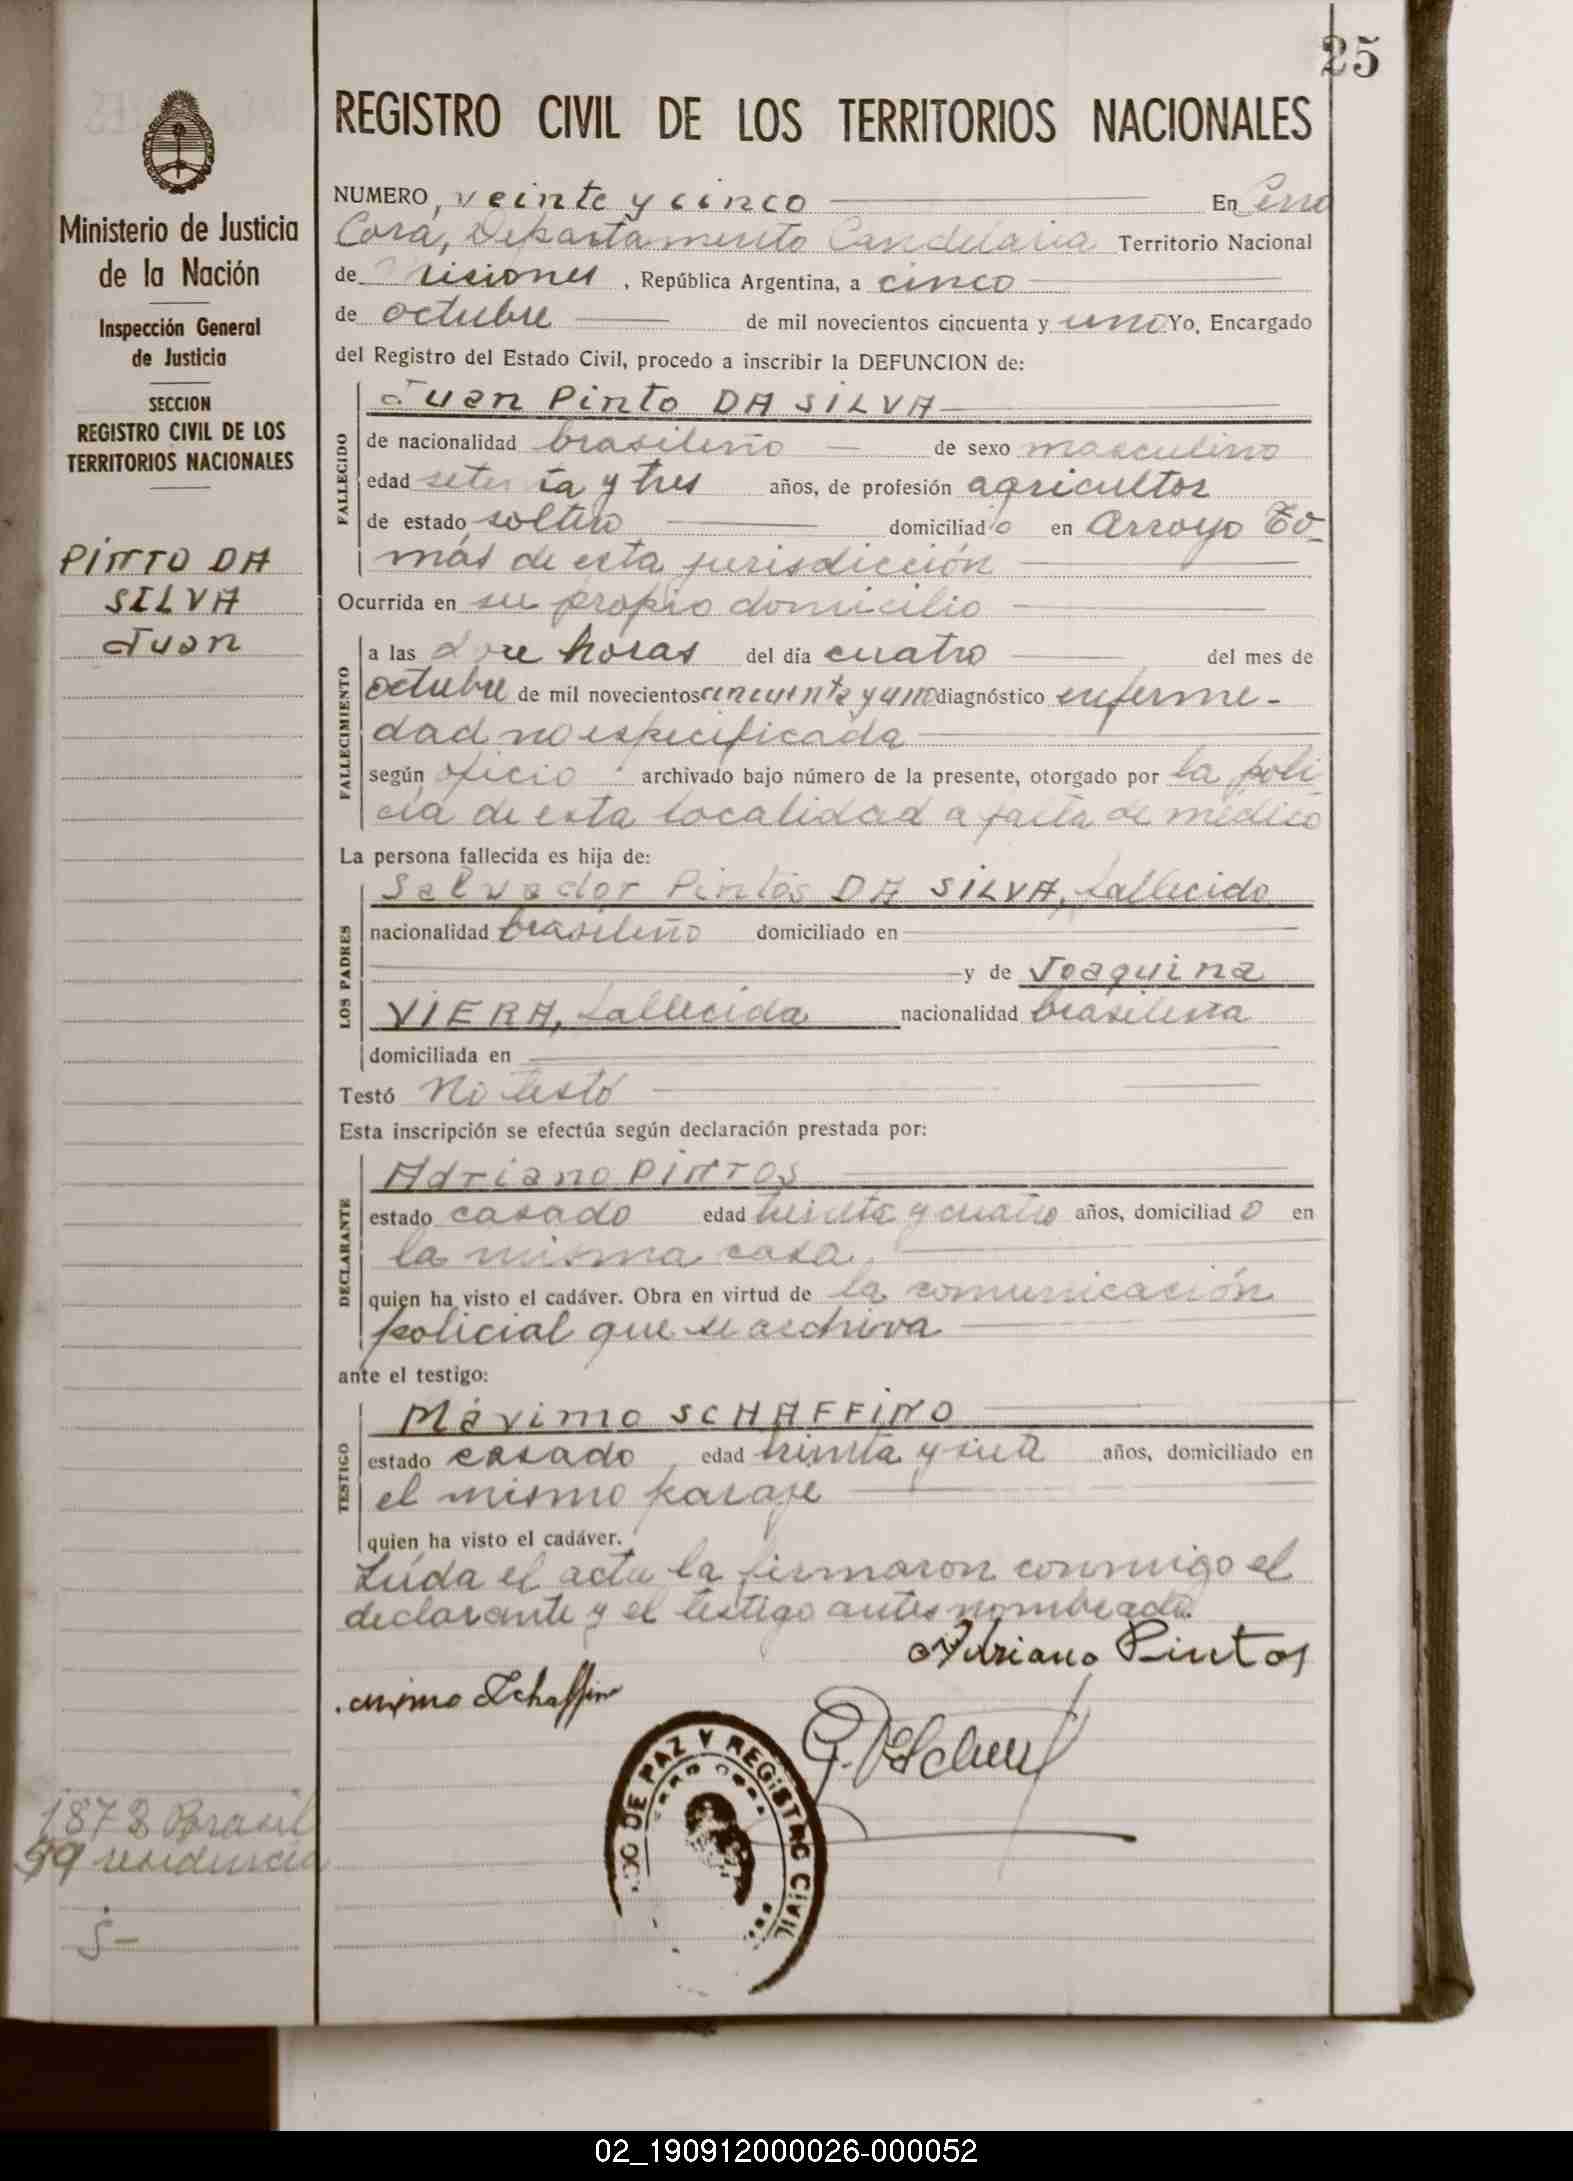 25
Ministerio de Justicia
de la Nación
Inspección General
de Justicia
SECCION
REGISTRO CIVIL DE LOS
TERRITORIOS NACIONALES
PINTO DA
SILVA
Juan
1878 Brasil
99 residencia
5-
REGISTRO CIVIL DE LOS TERRITORIOS NACIONALES
NUMERO, veinte y cinco En Cerro
Corá, Departamento Candelaria Territorio Nacional
de Misiones, República Argentina, a cinco
de octubre de mil novecientos cincuenta y uno Yo, Encargado
del Registro del Estado Civil, procedo a inscribir la DEFUNCION de:
Juan Pinto DA SILVA
FALLECIDO
de nacionalidad brasileño de sexo masculino
edad setenta y tres años, de profesión agricultor
de estado soltero domiciliado en Arroyo To-
más de esta jurisdicción
Ocurrida en su propio domicilio
FALLECIMIENTO
a las doce horas del día cuatro del mes de
octubre de mil novecientos cincuenta y uno diagnóstico enferme-
dad no especificada
según oficio archivado bajo número de la presente, otorgado por la poli-
cía de esta localidad a falta de médico
La persona fallecida es hija de:
LOS PADRES
Salvador Pintos DA SILVA, fallecido
nacionalidad brasileño domiciliado en
y de Joaquina
VIERA, fallecida nacionalidad brasilera
domiciliada en
Testó No testó
Esta inscripción se efectúa según declaración prestada por:
DECLARANTE
Adriano PINTOS
estado casado edad treinta y cuatro años, domiciliado en
la misma casa
quien ha visto el cadáver. Obra en virtud de la comunicación
policial que se archiva
ante el testigo:
TESTIGO
Máximo SCHAFFINO
estado casado edad treinta y siete años, domiciliado en
el mismo paraje
quien ha visto el cadáver.
Leída el acta la firmaron conmigo el
declarante y el testigo antes nombrado.
Adriano Pintos
DO DE PAZ Y REGISTRO CIVIL
02_190912000026-000052